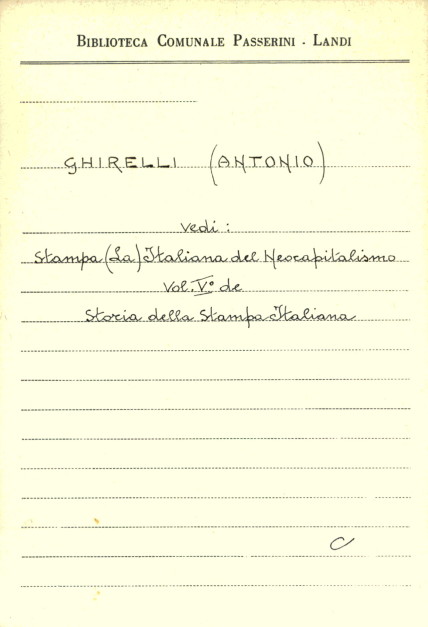 BIBLIOTECA COMUNALE PASSERINI - LANDI
GHIRELLI (ANTONIO)
vedi :
Stampa (La) Italiana del Neocapitalismo
Vol. V° de
Storia della Stampa Italiana
C